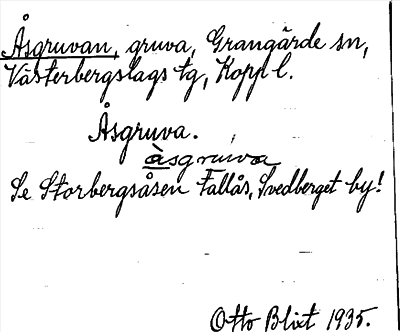 Åsgruvan, gruva, Grangärde sn,
Västerbergslags tg, Kopp l.
Åsgruva.
àsgruva
Se Storbergsåsen Fallås, Svedberget by!
Otto Blixt 1935.